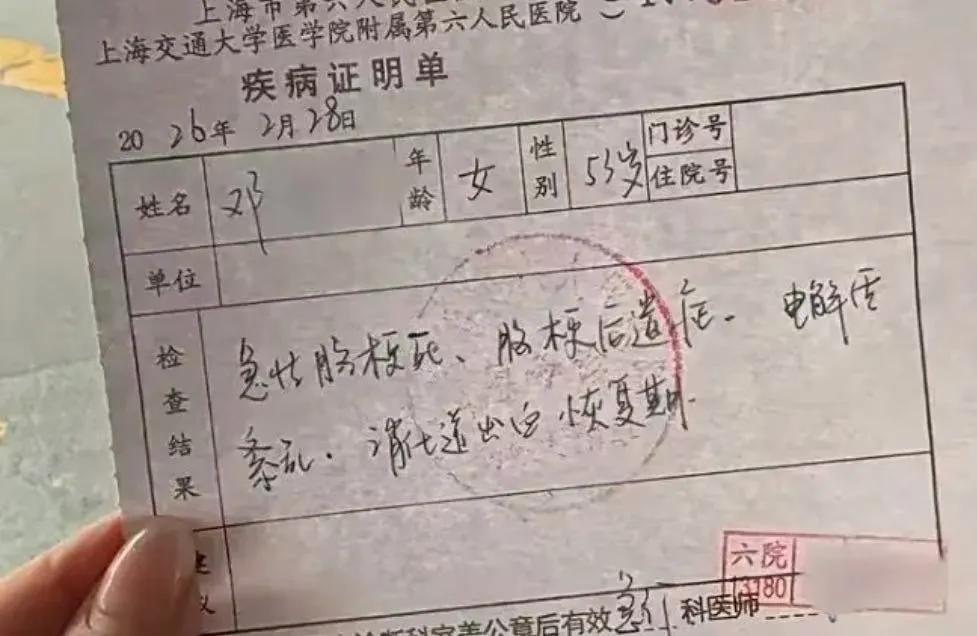 上海市第六人民医
上海交通大学医学院附属第六人民医院
疾病证明单
2026年 2月28日
姓名 邓 年龄 女 性别 53岁 门诊号
住院号
单位
检查结果 急性脑梗死、脑梗后遗症、电解质
紊乱、消化道出血恢复期
六院
3180
科完善公章后有效 急 科医师